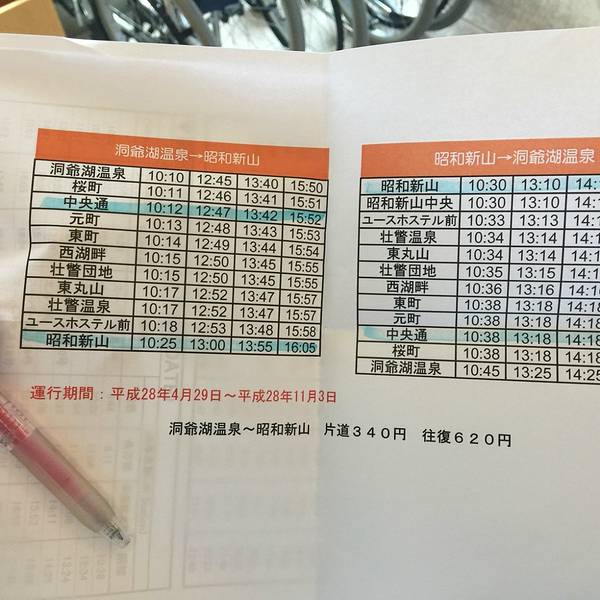 洞爺湖温泉→昭和新山
洞爺湖温泉 10:10 12:45 13:40 15:50
桜町 10:11 12:46 13:41 15:51
中央通 10:12 12:47 13:42 15:52
元町 10:13 12:48 13:43 15:53
東町 10:14 12:49 13:44 15:54
西湖畔 10:15 12:50 13:45 15:55
壮瞥団地 10:15 12:50 13:45 15:55
東丸山 10:17 12:52 13:47 15:57
壮瞥温泉 10:17 12:52 13:47 15:57
ユースホステル前 10:18 12:53 13:48 15:58
昭和新山 10:25 13:00 13:55 16:05
運行期間：平成28年4月29日～平成28年11月3日
昭和新山→洞爺湖温泉
昭和新山 10:30 13:10
昭和新山中央 10:30 13:10
ユースホステル前 10:33 13:13
壮瞥温泉 10:34 13:14
東丸山 10:34 13:14
壮瞥団地 10:35 13:15
西湖畔 10:36 13:16
東町 10:38 13:18 14:18
元町 10:38 13:18 14:18
中央通 10:38 13:18 14:18
桜町 10:38 13:18 14:18
洞爺湖温泉 10:45 13:25 14:25
洞爺湖温泉～昭和新山 片道３４０円 往復６２０円